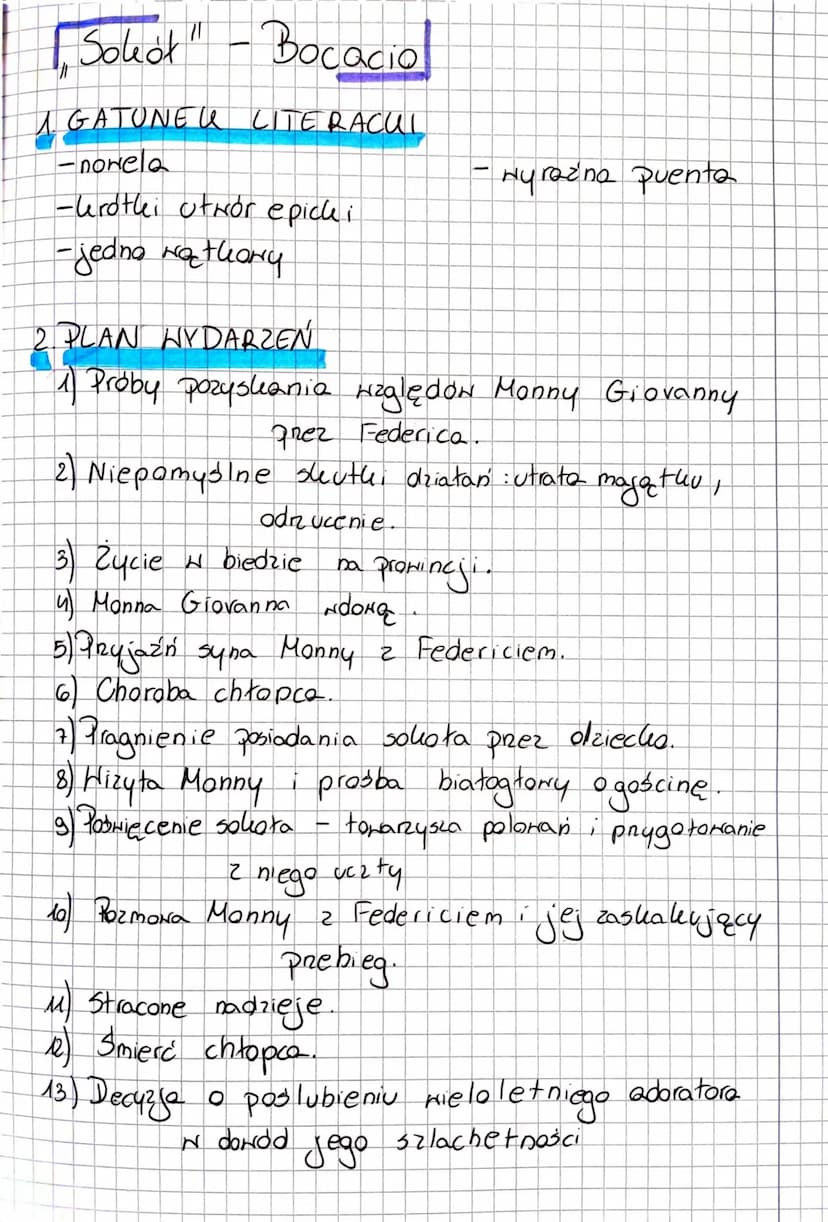 „Sokół" - Bocacio
1. GATUNEK LITERACKI
- nowela
- wyraźna puenta
- krótki utwór epicki
- jedno wątkowy
2. PLAN WYDARZEŃ
1) Próby pozyskania względów Monny Giovanny
przez Federica.
2) Niepomyślne skutki działań : utrata majątku,
odrzucenie.
3) Życie w biedzie na prowincji.
4) Monna Giovanna wdową.
5) Przyjaźń syna Monny z Federiciem.
6) Choroba chłopca.
7) Pragnienie posiadania sokoła przez dziecko.
8) Wizyta Monny i prośba białogłowy o gościnę.
9) Poświęcenie sokoła - towarzysza polowań i przygotowanie
z niego uczty
10) Rozmowa Monny z Federiciem i jej zaskakujący
przebieg.
11) Stracone nadzieje.
12) Śmierć chłopca.
13) Decyzja o poślubieniu wieloletniego adoratora
w dowód jego szlachetności